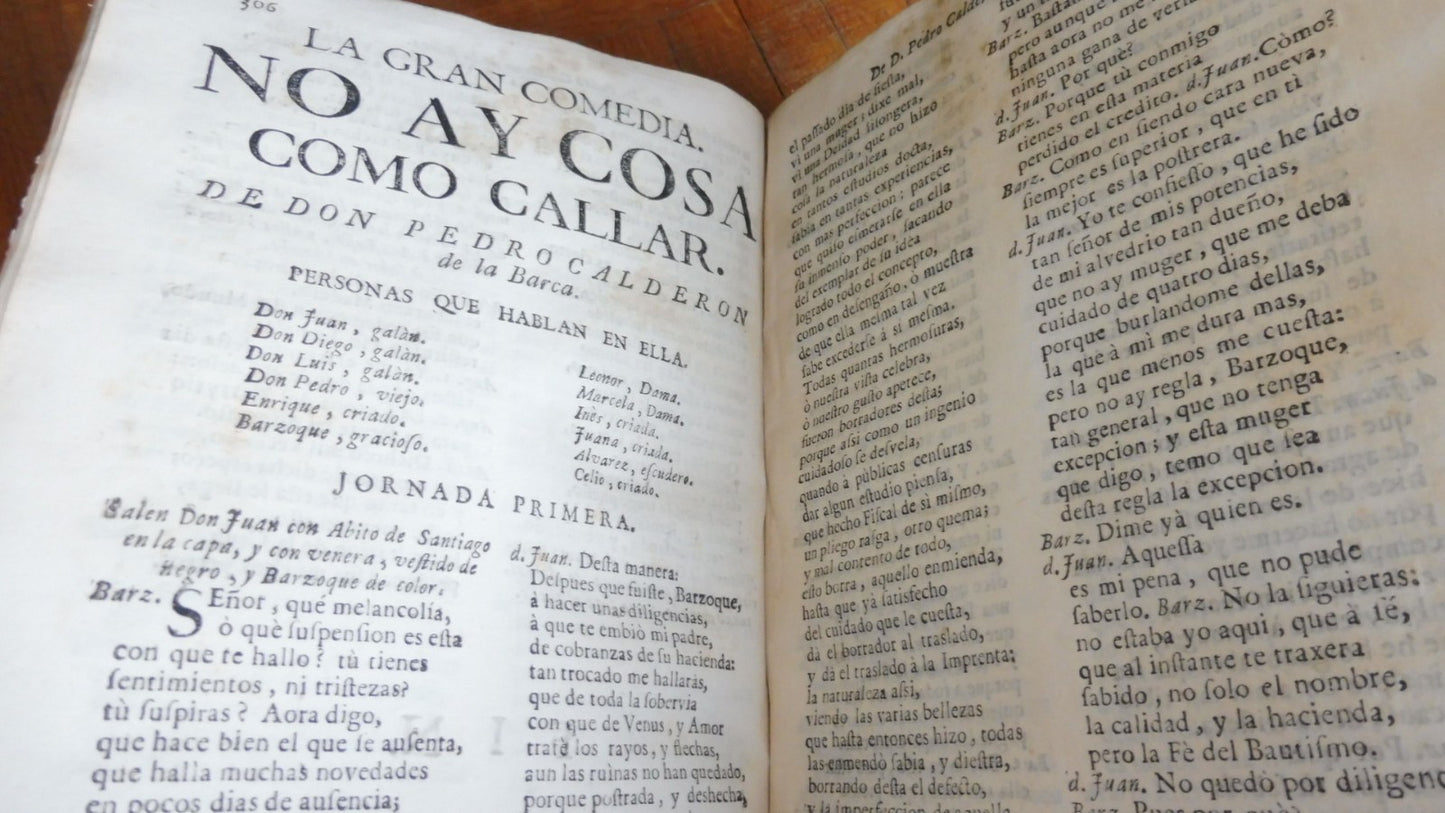 306
LA GRAN COMEDIA.
NO AY COSA
COMO CALLAR.
DE DON PEDRO CALDERON
de la Barca.
PERSONAS QUE HABLAN EN ELLA.
Don Juan, galàn.
Don Diego, galàn.
Don Luis, galàn.
Don Pedro, viejo.
Enrique, criado.
Barzoque, gracioſo.
Leonor, Dama.
Marcela, Dama.
Inès, criada.
Juana, criada.
Alvarez, eſcudero.
Celio, criado.
JORNADA PRIMERA.
Salen Don Juan con Abito de Santiago
en la capa, y con venera, veſtido de
negro, y Barzoque de color.
Barz. SEñor, què melancolìa,
ò què ſuſpenſion es eſta
con que te hallo? tù tienes
ſentimientos, ni triſtezas?
tù ſuſpiras? Aora digo,
que hace bien el que ſe auſenta,
que halla muchas novedades
en pocos dias de auſencia;
d. Juan. Deſta manera:
Deſpues que fuiſte, Barzoque,
à hacer unas diligencias,
à que te embiò mi padre,
de cobranzas de ſu hacienda:
tan trocado me hallaràs,
que de toda la ſobervia
con que de Venus, y Amor
tratè los rayos, y flechas,
aun las ruìnas no han quedado,
porque poſtrada, y deshecha,
De D. Pedro
el paſſado dia de fieſta,
vì una muger: dixe mal,
vì una Deidad liſongera,
tan hermoſa, que no hizo
coſa la naturaleza
en tantos eſtudios docta,
ſabia en tantas experiencias,
con mas perfeccion; parece
que quiſo eſmerarſe en ella
ſu inmenſo poder, ſacando
del exemplar de ſu idea
logrado todo el concepto,
como en deſengaño, ò mueſtra
de que ella meſma tal vez
ſabe excederſe à sì meſma.
Todas quantas hermoſuras,
ò nueſtra viſta celebra,
ò nueſtro guſto apetece,
fueron borradores deſta;
porque aſsi como un ingenio
cuidadoſo ſe deſvela,
quando à pùblicas cenſuras
dar algun eſtudio pienſa,
que hecho Fiſcal de sì miſmo,
un pliego raſga, otro quema;
y mal contento de todo,
eſto borra, aquello enmienda,
haſta que yà ſatisfecho
del cuidado que le cueſta,
dà el borrador al traslado,
y dà el traslado à la Imprenta:
la naturaleza aſsi,
viendo las varias bellezas
que haſta entonces hizo, todas
las enmendò ſabia, y dieſtra,
borrando deſta el defecto,
y la imperfeccion de aquella
Barz.
pero aunque
baſta aora no me
ninguna gana de verla
d. Juan. Por què?
Barz. Porque tù conmigo
tienes en eſta materia
perdido el credito. d. Juan. Còmo?
Barz. Como en ſiendo cara nueva,
ſiempre es ſuperior, que en tì
la mejor es la poſtrera.
d. Juan. Yo te confieſſo, que he ſido
tan ſeñor de mis potencias,
de mi alvedrio tan dueño,
que no ay muger, que me deba
cuidado de quatro dias,
porque burlandome dellas,
la que à mì me dura mas,
es la que menos me cueſta:
pero no ay regla, Barzoque,
tan general, que no tenga
excepcion; y eſta muger
que digo, temo que ſea
deſta regla la excepcion.
Barz. Dime yà quien es.
d. Juan. Aqueſſa
es mi pena, que no pude
ſaberlo. Barz. No la ſiguieras:
no eſtaba yo aqui, que à fè,
que al inſtante te traxera
ſabido, no ſolo el nombre,
la calidad, y la hacienda,
pero la Fè del Bautiſmo.
d. Juan. No quedò por diligenc
Barz. Pues por què?